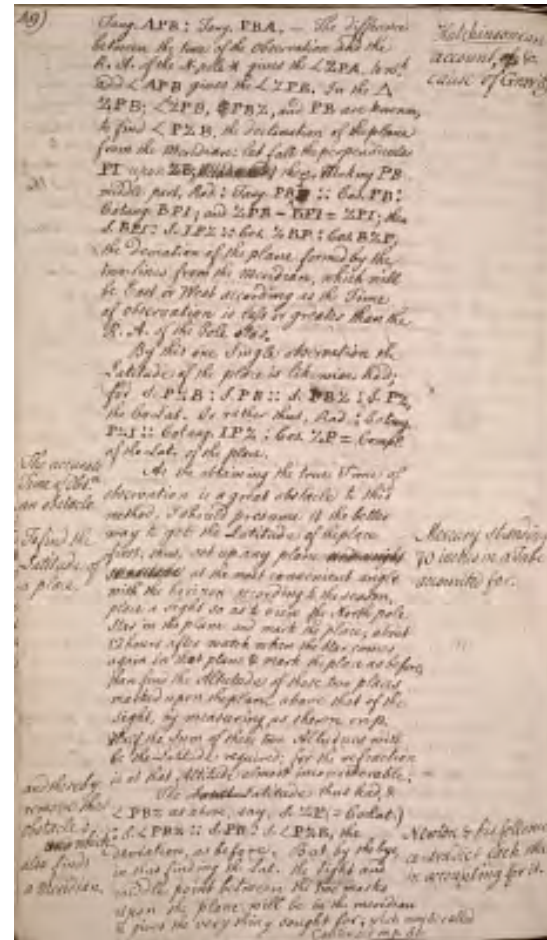 49)
Tang. APB : Tang. PBA. — The difference
between the time of the observation and the
R. A. of the N. pole * gives the ∠ZPA,
add ∠APB gives the ∠ZPB. In the △
ZPB; ∠ZPB, PBZ, and PB are known,
to find ∠PZB, the declination of the plane
from the Meridian: let fall the perpendicular
PI upon ZB, then, making PB
middle part, Rad : Tang. PB :: Cos. PB :
Cotang. BPI; and ZPB - BPI = ZPI; then
S. BPI : S. IPZ :: Cos. ZBP : Cos. BZP,
the deviation of the plane formed by the
two lines from the meridian, which will
be East or West according as the Time
of observation is less or greater than the
R. A. of the Pole Star.
By this one single observation the
Latitude of the place is likewise had;
for S. PZB : S. PB :: S. PBZ : S. PZ,
the Co-Lat. Or rather thus, Rad : Cotang.
PZI :: Cotang. IPZ : Cos. ZP = Compl.
of the Lat. of the place.
As the obtaining the true Time of
observation is a great obstacle to this
method, I should presume it the better
way to get the Latitude of the place
first, thus, set up any plane
at the most convenient angle
with the horizon according to the season,
place a sight so as to view the North pole
star in the plane and mark the place, about
12 hours after watch when the star comes
again in that plane & mark the place as before,
than find the Altitudes of these two places
marked upon the plane above that of the
sight, by measuring as shewn
Half the Sum of these two Altitudes will
be the Latitude required; for the refraction
is at that Altitude almost inconsiderable.
The Latitude thus had, &
∠PBZ as above, say, S. ZP (= Co-Lat.)
: S. ∠PBZ :: S. PB : S. ∠PZB, the
deviation, as before. But by the bye,
in thus finding the Lat. the sight and
middle point between the two marks
upon the plane will be in the meridian
& gives the very thing sought for; which may be called
Hutchinsonian
account, of ye
cause of Gravity
The accurate
Time of Obsn.
an obstacle
To find the
Latitude of
a place.
and thereby
remove this
obstacle
which
also finds
a Meridian.
Mercury standing
70 inches in a Tube
accounted for.
Newton & his followers
contradict each other
in accounting for it.